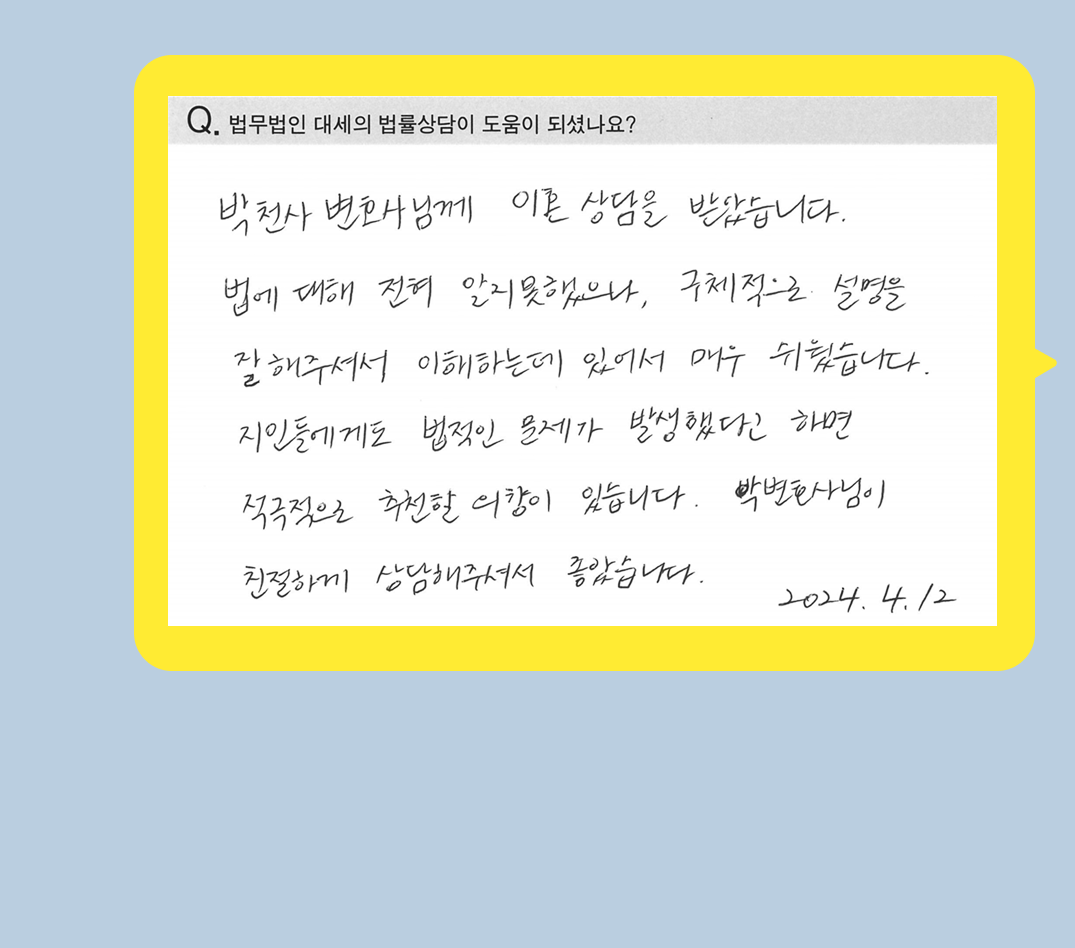 Q. 법무법인 대세의 법률상담이 도움이 되셨나요?
박천사 변호사님께 이혼 상담을 받았습니다.
법에 대해 전혀 알지못했으나, 구체적으로 설명을
잘 해주셔서 이해하는데 있어서 매우 쉬웠습니다.
지인들에게도 법적인 문제가 발생했다고 하면
적극적으로 추천할 의향이 있습니다. 박변호사님이
친절하게 상담해주셔서 좋았습니다.
2024. 4. 12